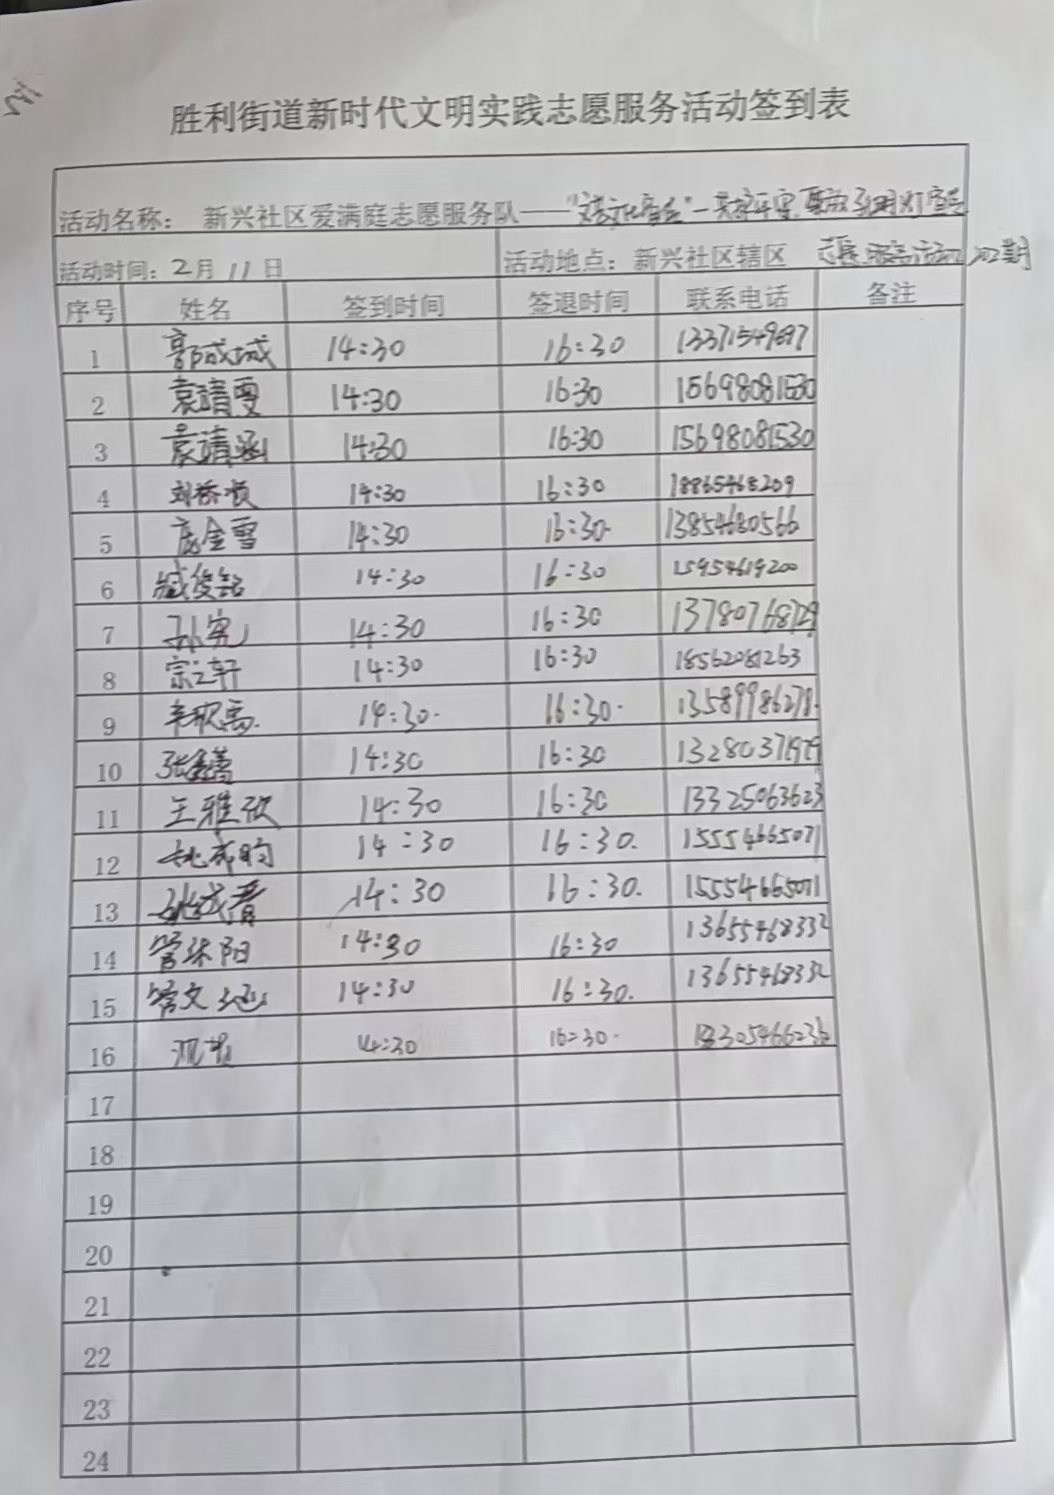 胜利街道新时代文明实践志愿服务活动签到表
活动名称： 新兴社区爱满庭志愿服务队——
活动时间：2月11日 活动地点：新兴社区辖区 志愿服务活动202期
序号 姓名 签到时间 签退时间 联系电话 备注
1 郭成城 14:30 16:30 13371549697
2 袁靖雯 14:30 16:30 15698081530
3 袁靖涵 14:30 16:30 15698081530
4 14:30 16:30 18865468209
5 庞金雪 14:30 16:30 13854680566
6 臧俊铭 14:30 16:30 15954619200
7 14:30 16:30 13780768729
8 宗之轩 14:30 16:30 18562081263
9 14:30 16:30 13589986278
10 14:30 16:30 13280371979
11 王雅欣 14:30 16:30 13325063623
12 14:30 16:30 15554665071
13 14:30 16:30 15554665071
14 管沐阳 14:30 16:30 13655468332
15 管文 14:30 16:30 13655468332
16 14:30 16:30
17
18
19
20
21
22
23
24